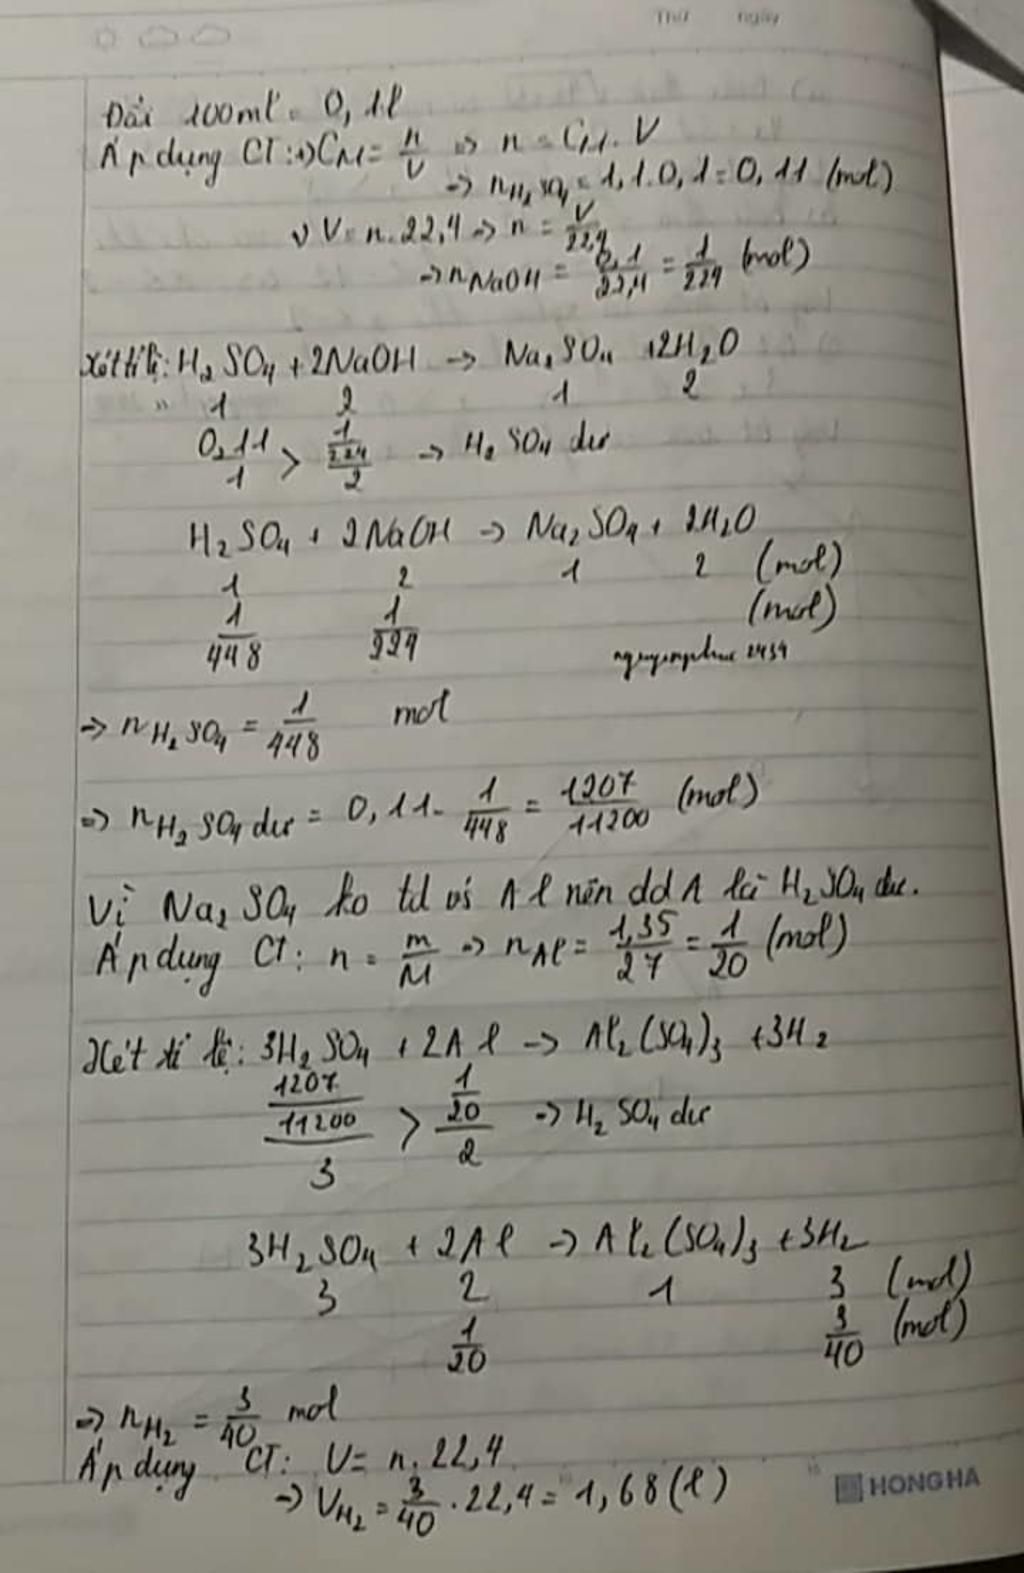 Thứ ngày
Đổi 100ml = 0,1l
Áp dụng CT: +) CM = n/V => n = CM. V
=> nH2SO4 = 1,1.0,1 = 0,11 (mol)
V = n.22,4 => n = V/22,4
=> nNaOH = 0,1/22,4 = 1/224 (mol)
Xét tỉ lệ: H2SO4 + 2NaOH -> Na2SO4 + 2H2O
1 2 1 2
0,11/1 > 1/224/2 -> H2SO4 dư
H2SO4 + 2NaOH -> Na2SO4 + 2H2O
1 2 1 2 (mol)
1/448 1/224 (mol)
=> nH2SO4 = 1/448 mol
=> nH2SO4 dư = 0,11 - 1/448 = 1207/11200 (mol)
Vì Na2SO4 ko td vs Al nên dd A là H2SO4 dư.
Áp dụng CT: n = m/M => nAl = 1,35/27 = 1/20 (mol)
Xét tỉ lệ: 3H2SO4 + 2Al -> Al2(SO4)3 + 3H2
1207/11200/3 > 1/20/2 -> H2SO4 dư
3H2SO4 + 2Al -> Al2(SO4)3 + 3H2
3 2 1 3 (mol)
1/20 3/40 (mol)
=> nH2 = 3/40 mol
Áp dụng CT: V = n.22,4
=> VH2 = 3/40 . 22,4 = 1,68 (l)
HONG HA